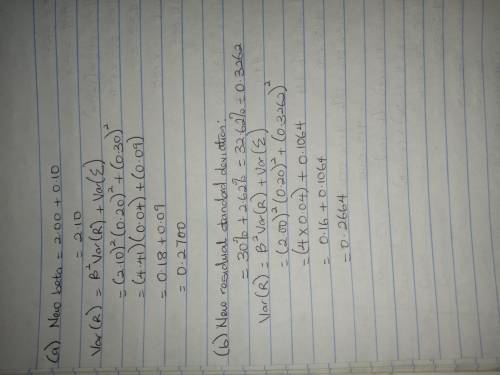 (a) New beta = 2.00 + 0.10
= 2.10
Var(R) = β² Var(R) + Var(Σ)
= (2.10)² (0.20)² + (0.30)²
= (4.41)(0.04) + (0.09)
= 0.18 + 0.09
= 0.2700
(b) New residual standard deviation:
= 30% + 2.62% = 32.62% = 0.3262
Var(R) = β² Var(R) + Var(Σ)
= (2.00)² (0.20)² + (0.3262)²
= (4 × 0.04) + 0.1064
= 0.16 + 0.1064
= 0.2664